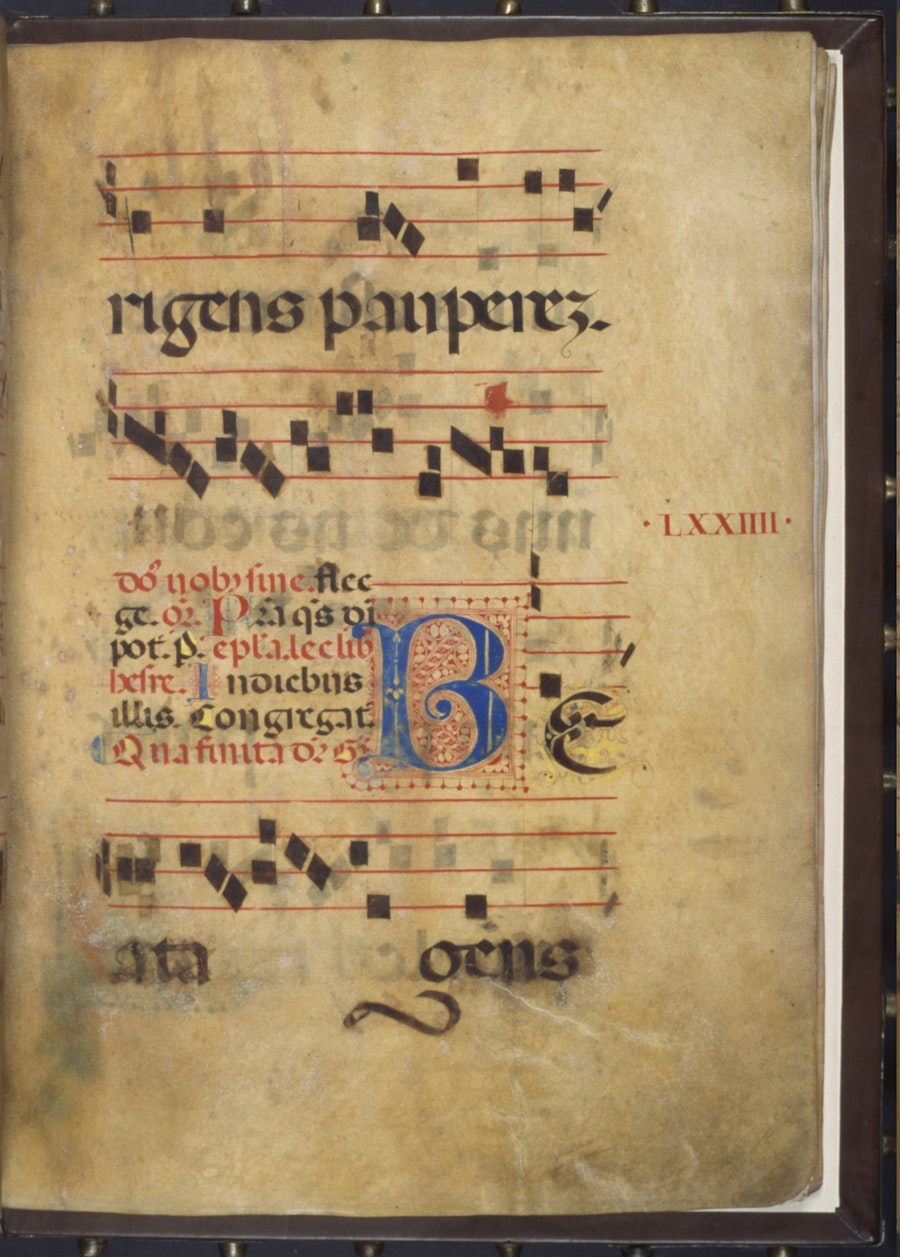 rigens pauperez.
· LXXIIII ·
do nob sine. flec
ge. or. Pra qs di
pot. p. epla. lec lib
hesre. In diebus
illis. Congregat.
Qua finita dr G
BE
ata gens